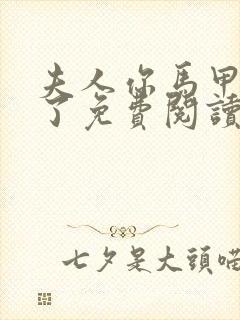 夫人你馬甲
了免費閱讀
七夕是大頭喵